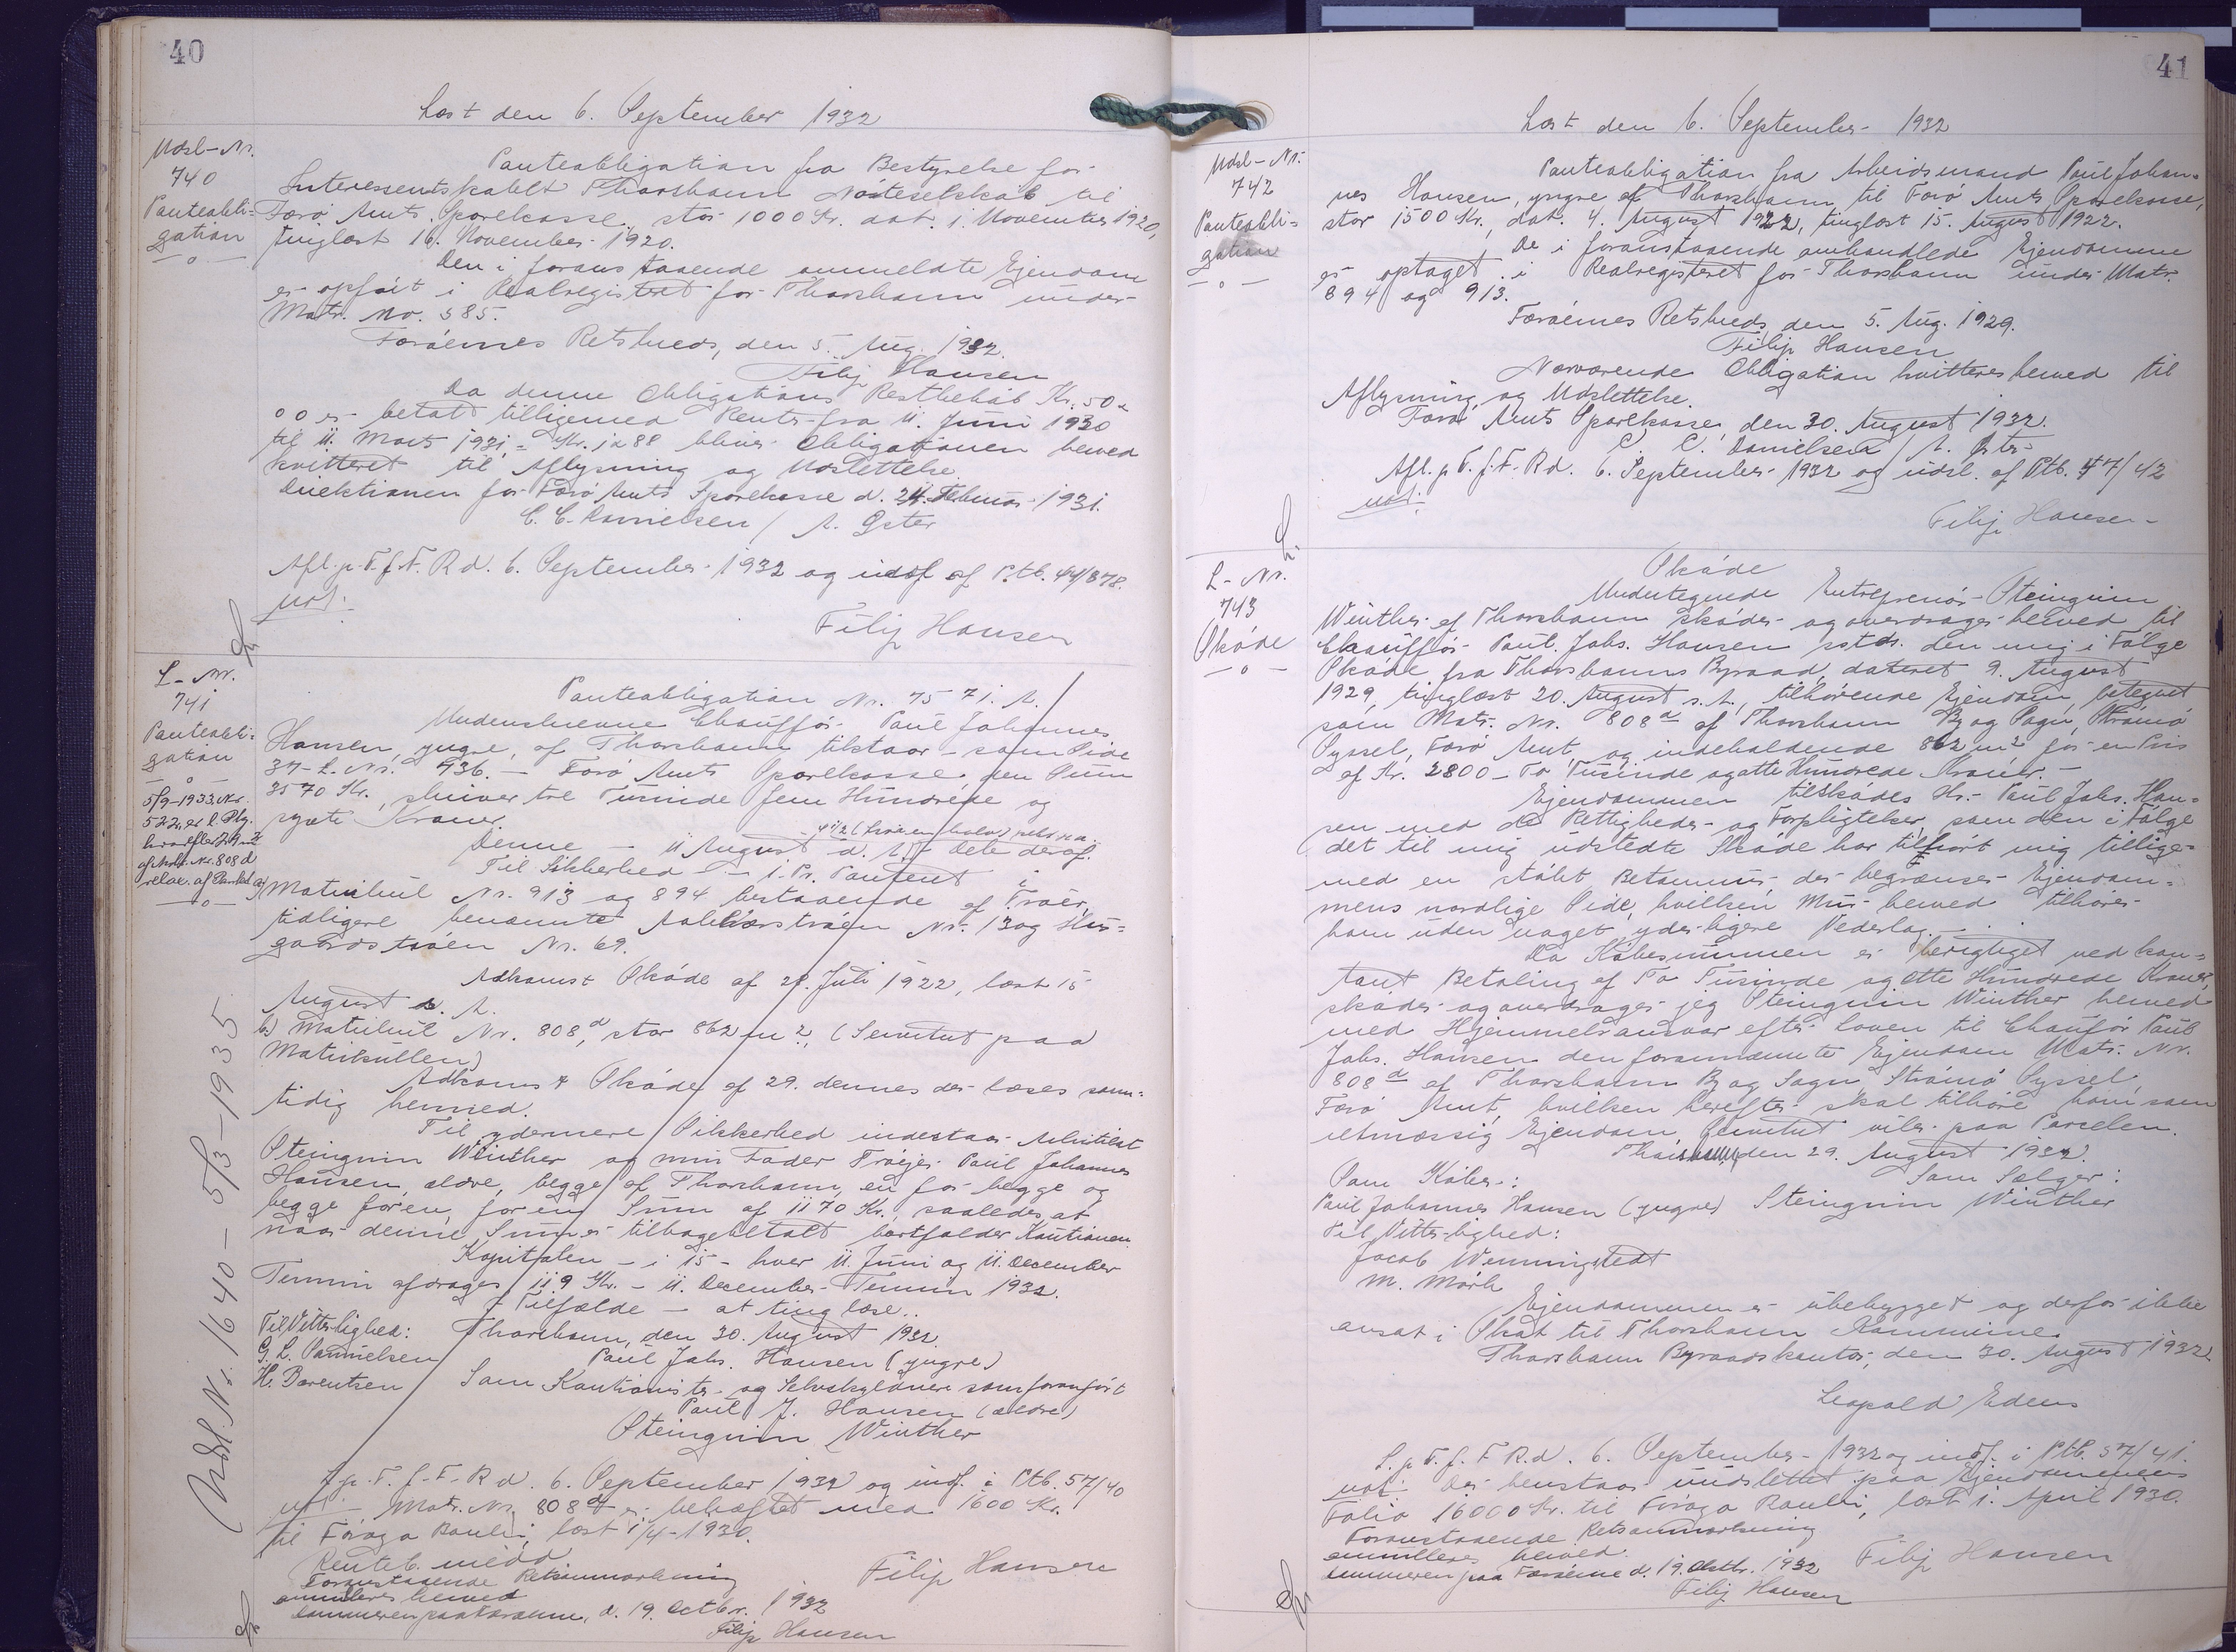 40
Læst den 6. September 1932
Udsl-Nr.
740
Panteobli-
gation
Panteobligation fra Bestyrelse for
Interessentskabet Thorshavn Nósteselskab til
Færø Amts Sparekasse, stor 1000 Kr. dat. 1. November 1920,
tinglæst 16. November 1920.
Den i foranstaaende ommeldte Ejendom
er opført i Realregistret for Thorshavn under
Matr. No. 585.
Færøernes Retskreds, den 5. Aug. 1932.
Filip Hansen
Da denne Obligations Restbeløb Kr. 50
00 er betalt tilligemed Rente fra 11. Juni 1930
til 11. Marts 1931 = Kr. 1 88 bliver Obligationen herved
kvitteret til Aflysning og Udslettelse
Direktionen for Færø Amts Sparekasse d. 24. Februar 1931.
C. C. Danielsen / A. Øster
Afl. p. T. f. F. R d. 6. September 1932 og udsl. af Ptb. 44/378.
not.
Filip Hansen
L-Nr.
741
Panteobli-
gation
5/9-1933 Nr.
522, er l. Påtg.
hvorefter 29 m2
af Matr. Nr. 808 d
relax. af Pantet
Panteobligation Nr. 7571. A.
Underskrevne Chauffør Paul Johannes
Hansen, yngre, af Thorshavn tilstaar som Side
37-L. Nr. 936. - Færø Amts Sparekasse den Sum
3570 Kr., skriver tre Tusinde fem Hundrede og
syvti Kroner.
4 1/2 (fire en halv) pCt. p. a.
Denne - 11 August d. A. - Dele deraf.
Til Sikkerhed - 1. Pr. Panteret i
a) Matrikul Nr. 913 og 894 bestaaende af Traer,
tidligere benævnte Nr. 13 og Hus=
gaardstrøen Nr. 69.
Adkomst Skøde af 29. Juli 1922, læst 15
August s. A.
b) Matrikul Nr. 808 d, stor 862 m2, (Servitut paa
Matrikullen)
Adkomst Skøde af 29. dennes der læses sam=
tidig hermed.
Til ydermere Sikkerhed indestaar Arkitekt
Steingrim Winther og min Fader Paul Johannes
Hansen ældre, begge af Thorshavn, en for begge og
begge for en, for en Sum af 1170 Kr., saaledes at
naar denne Sum er tilbagebetalt bortfalder Kautionen.
Kapitalen - i 15 - hver 11. Juni og 11. December
Termin afdrages 119 Kr. - 11. December Termin 1932.
- Tilfælde - at tinglæse.
Til Vitterlighed: Thorshavn, den 30. August 1932
G. L. Danielsen Paul Johs. Hansen (yngre)
H. Darentsen Som Kautionister og Selvskyldnere som foranført
Paul J. Hansen (ældre)
Steingrim Winther
L. p. T. f. F. R d. 6. September 1932 og indf. i Ptb. 57/40
not. - Matr. Nr. 808 d er behæftet med 1600 Kr.
til Føroya Banki, læst 1/4-1930.
Filip Hansen
Foranstaaende Retsanmærkning
annulleres herved
Dommeren paa Færøerne, d. 19. Octbr. 1932
Filip Hansen
Udsl. Nr. 1640 - 5/3-1935
41
Læst den 6. September 1932
Udsl-Nr.
742
Panteobli=
gation
Panteobligation fra Arbeidsmand Paul Johan=
nes Hansen, yngre af Thorshavn til Færø Amts Sparekasse,
stor 1500 Kr., dat. 4. August 1922, tinglæst 15. August 1922.
De i foranstaaende omhandlede Ejendomme
er optaget i Realregisteret for Thorshavn under Matr.
894 og 913.
Færøernes Retskreds den 5. Aug. 1929.
Filip Hansen
Nærværende Obligation kvitteres herved til
Aflysning og Udslettelse.
Færø Amts Sparekasse, den 30. August 1932.
C. C. Danielsen / A. Øster
Afl. p T. f. F. R d. 6. September 1932 og udsl. af Ptb. 47/42
not.
Filip Hansen
L-Nr.
743
Skøde
Skøde
Undertegnede Entreprenør Steingrim
Winther af Thorshavn skøder og overdrager herved til
Chauffør Paul Johs. Hansen sstds. den mig i Følge
Skøde fra Thorshavns Byraad, dateret 9. August
1929, tinglæst 20. August s. A., tilhørende Ejendom, betegnet
som Matr. Nr. 808 d af Thorshavn By og Sogn, Strømø
Syssel, Færø Amt, og indeholdende 862 m2 for en Pris
af Kr. 2800 - To Tusinde og otte Hundrede Kroner. -
Ejendommen tilskødes Hr. Paul Johs. Han=
sen med de Rettigheder og Forpligtelser, som den i Følge
det til mig udstedte Skøde har tilhørt mig tillige=
med en støbt Betonmur, der begrænser Ejendom=
mens nordlige Side, hvilken Mur herved tilhører
ham uden noget yderligere Vederlag.
Da Købesummen er berigtiget ved kon=
tant Betaling af To Tusinde og otte Hundrede Kroner,
skøder og overdrager jeg Steingrim Winther herved
med Hjemmelsansvar efter Loven til Chaufør Paul
Johs. Hansen den forannævnte Ejendom Matr. Nr.
808 d af Thorshavn By og Sogn, Strømø Syssel,
Færø Amt, hvilken herefter skal tilhøre ham som
retmæssig Ejendom. Servitut viler paa Parselen.
Thorshavn, den 29. August 1932.
Som Køber: Som Sælger:
Paul Johannes Hansen (yngre) Steingrim Winther
Til Vitterlighed:
Jacob Wenningstedt
M. Mørk
Ejendommen er ubebygget og derfor ikke
ansat i Skat til Thorshavn Kommune.
Thorshavn Byraadskontor, den 30. August 1932
Leopold Edens
L. p T. f. F R. d. 6. September 1932 og indf. i Ptb. 57/41.
not. Der henstaar uudslettet paa Ejendommens
Folio 16000 Kr. til Føroya Banki, læst 1. April 1930.
Foranstaaende Retsanmærkning
annulleres herved.
Dommeren paa Færøerne d. 19. Octbr. 1932
Filip Hansen
Filip Hansen